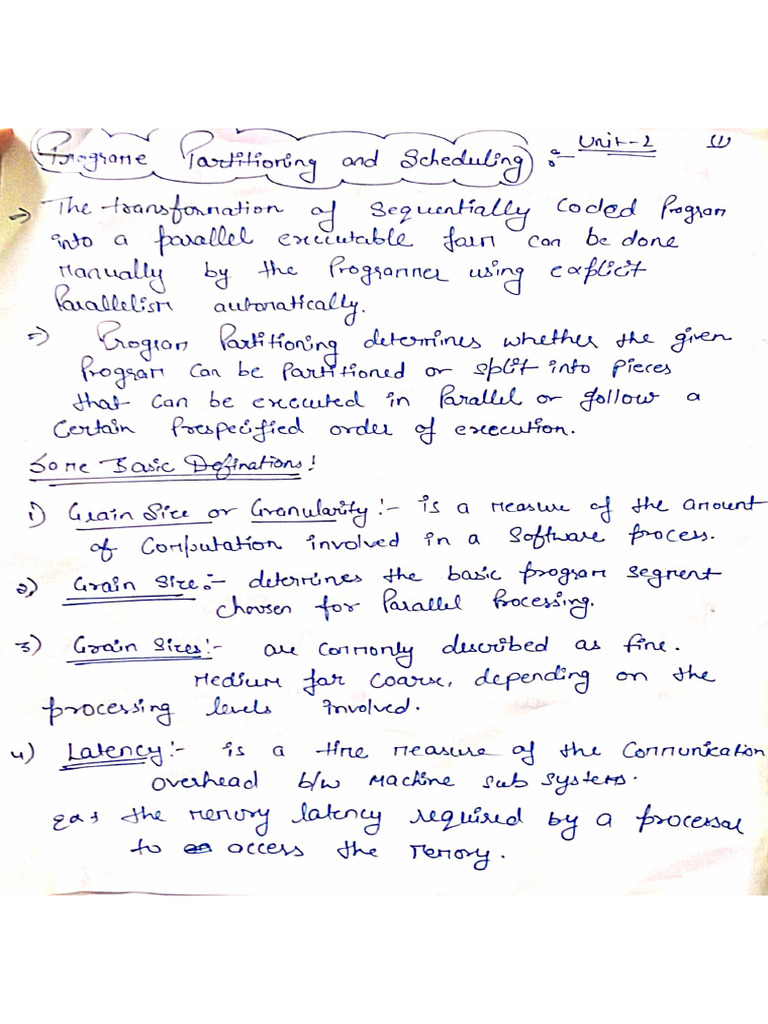 Programe Partitioning and Scheduling :- Unit-2 (1)
⇒ The transformation of Sequentially Coded Program
into a parallel executable form can be done
Manually by the Programmer using explicit
Parallelism automatically.
⇒ Program Partitioning determines whether the given
Program can be Partitioned or split into Pieces
that can be executed in Parallel or follow a
Certain Prespecified order of execution.
Some Basic Definations!
1) Grain Size or Granularity:- is a measure of the amount
of Computation involved in a Software process.
2) Grain Size:- determines the basic program segment
choosen for Parallel Processing.
3) Grain Sizes:- are commonly described as fine.
Medium for coarse, depending on the
processing levels involved.
4) Latency:- is a time measure of the Communication
overhead b/w Machine sub systems.
the memory latency required by a processor
to access the Memory.